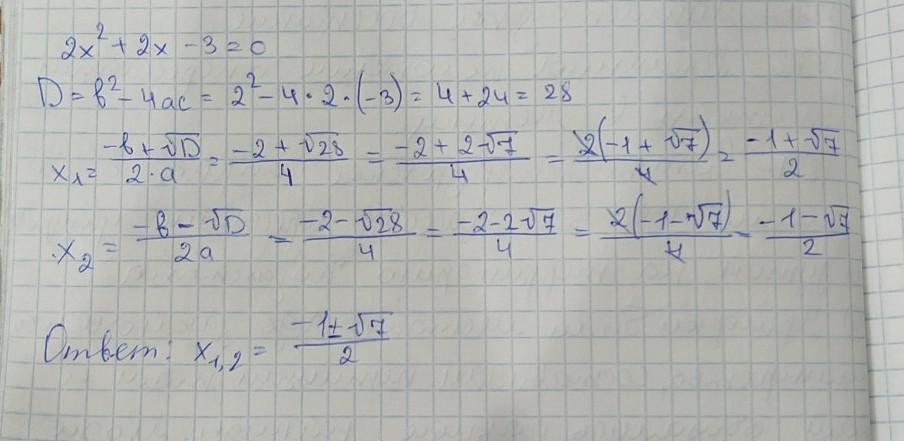 2x² + 2x - 3 = 0
D = b² - 4ac = 2² - 4 · 2 · (-3) = 4 + 24 = 28
x₁ = (-b + √D)/(2 · a) = (-2 + √28)/4 = (-2 + 2√7)/4 = 2(-1 + √7)/4 = (-1 + √7)/2
x₂ = (-b - √D)/(2a) = (-2 - √28)/4 = (-2 - 2√7)/4 = 2(-1 - √7)/4 = (-1 - √7)/2
Ответ: x₁,₂ = (-1 ± √7)/2